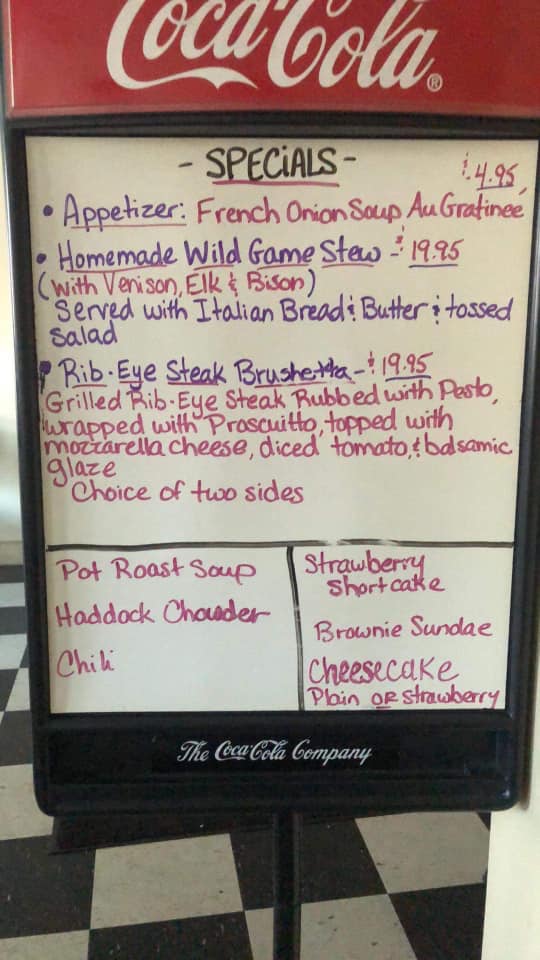 Coca-Cola®
- SPECiALS -
$4.95
• Appetizer: French Onion Soup Au Gratinee
• Homemade Wild Game Stew - $19.95
(with Venison, Elk & Bison)
Served with Italian Bread & Butter & tossed
Salad
• Rib-Eye Steak Brushetta - $19.95
Grilled Rib-Eye Steak Rubbed with Pesto,
wrapped with Proscuitto, topped with
mozzarella cheese, diced tomato, & balsamic
glaze
Choice of two sides
Pot Roast Soup
Haddock Chowder
Chili
Strawberry
Shortcake
Brownie Sundae
Cheesecake
Plain OR Strawberry
The Coca-Cola Company